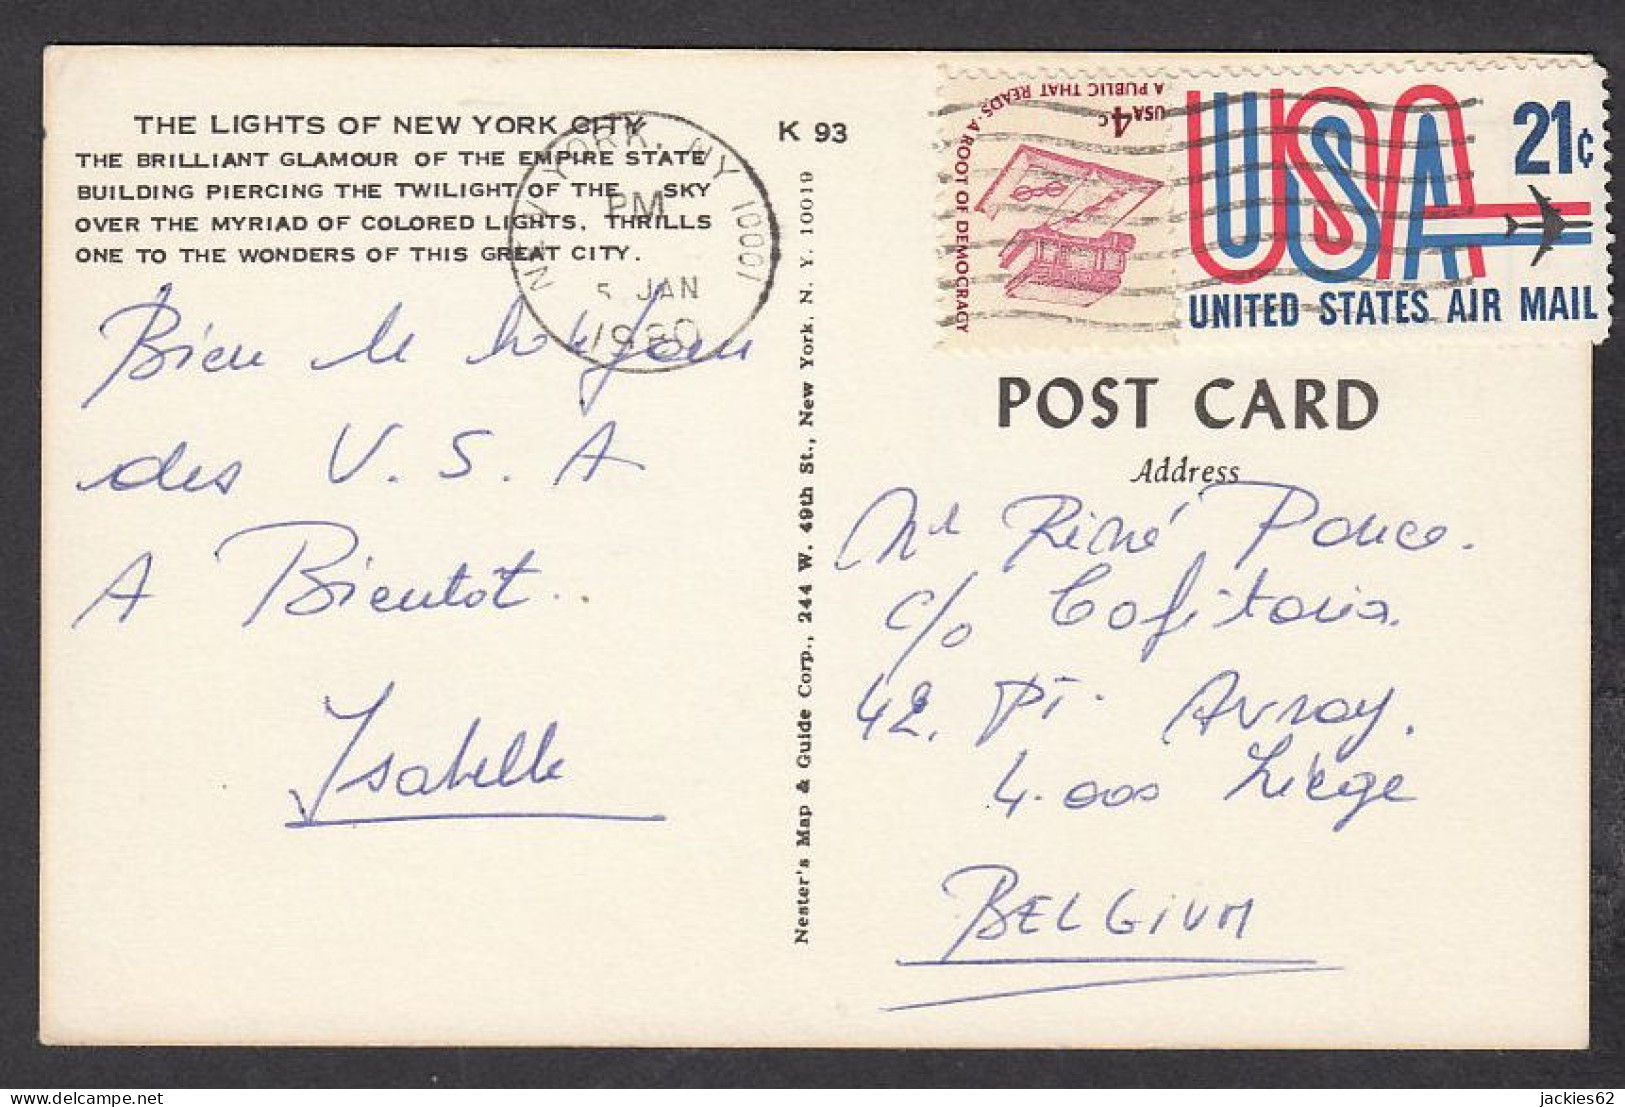 THE LIGHTS OF NEW YORK CITY
THE BRILLIANT GLAMOUR OF THE EMPIRE STATE
BUILDING PIERCING THE TWILIGHT OF THE SKY
OVER THE MYRIAD OF COLORED LIGHTS, THRILLS
ONE TO THE WONDERS OF THIS GREAT CITY.
K 93
NEW YORK, NY 10001
PM
5 JAN
1980
Bien le bonjour
des U.S.A
A Bientôt..
Isabelle
Nester's Map & Guide Corp., 244 W. 49th St., New York, N. Y. 10019
USA 4c
A PUBLIC THAT READS · A ROOT OF DEMOCRACY
USA 21¢
UNITED STATES AIR MAIL
POST CARD
Address
Mr René Ponce.
c/o Cofitoria.
42. Pt. Avroy.
4.000 Liège
BELGIUM
jackies62